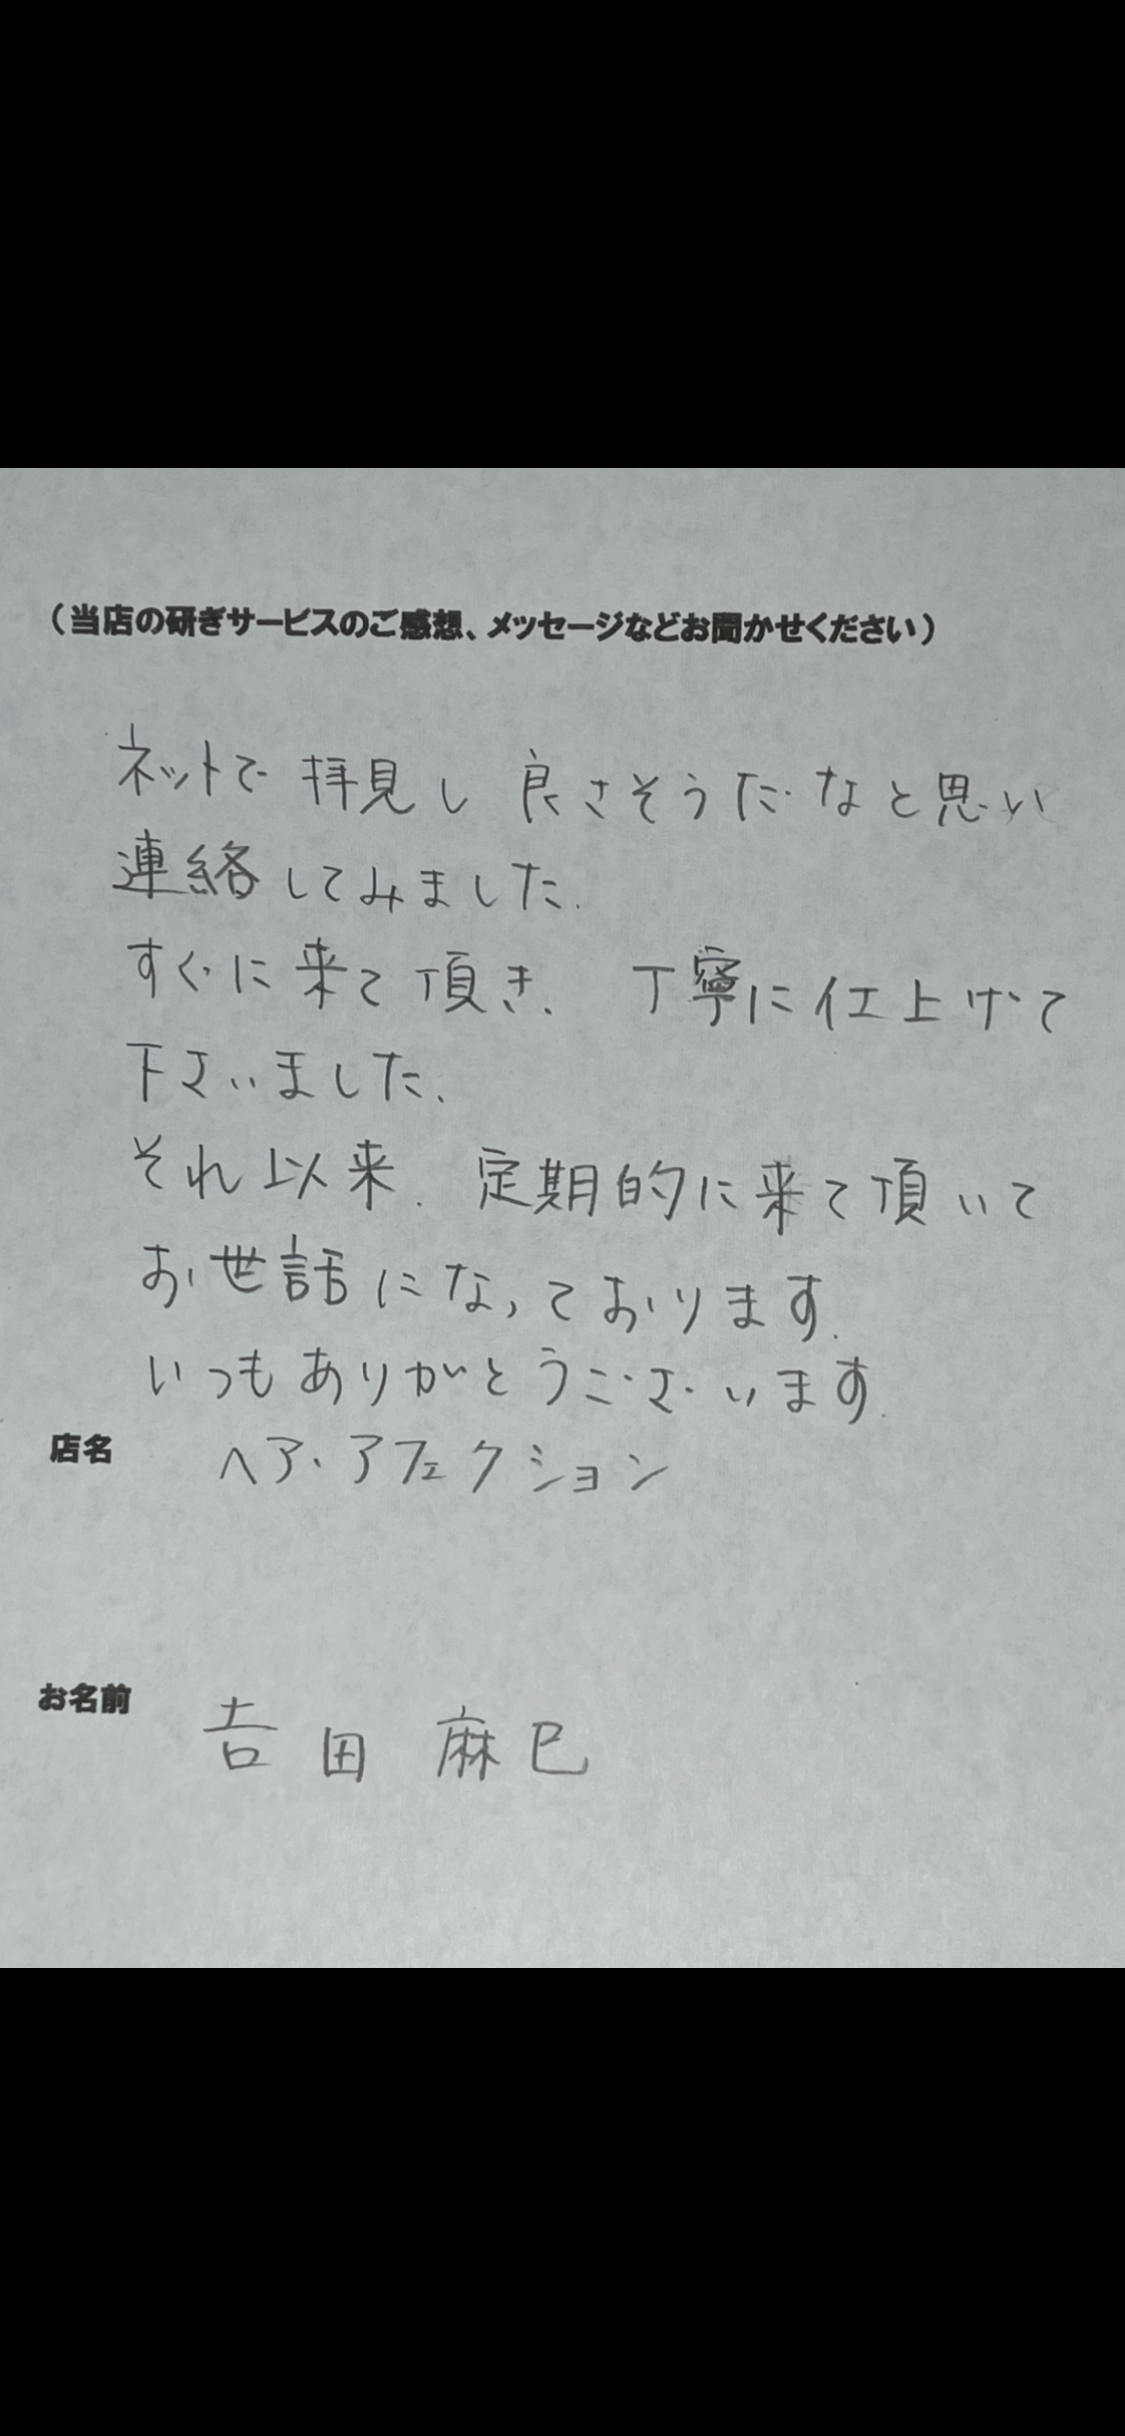 （当店の研ぎサービスのご感想、メッセージなどお聞かせください）
ネットで 拝見し 良さそうだなと思い
連絡してみました.
すぐに来て頂き、丁寧に仕上げて
下さいました、
それ以来、定期的に来て頂いて
お世話になっております.
いつもありがとうございます.
店名 ヘア・アフェクション
お名前 吉田 麻巳